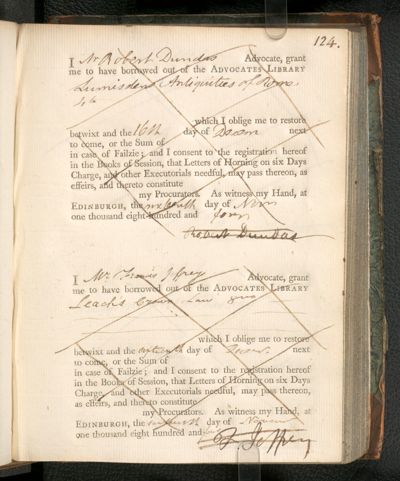 124.
I Mr Robert Dundas Advocate, grant
me to have borrowed out of the ADVOCATES LIBRARY
Lumisdens Antiquities of Rome
4to
which I oblige me to restore
betwixt and the 16th day of Decem next
to come, or the Sum of
in case of Failzie; and I consent to the registration hereof
in the Books of Session, that Letters of Horning on six Days
Charge, and other Executorials needful, may pass thereon, as
effeirs, and thereto constitute
my Procurators. As witness my Hand, at
EDINBURGH, the sixteenth day of Novr
one thousand eight hundred and four
Robert Dundas
I Mr Francis Jeffrey Advocate, grant
me to have borrowed out of the ADVOCATES LIBRARY
Leachs Crown Law
which I oblige me to restore
betwixt and the sixteenth day of next
to come, or the Sum of
in case of Failzie; and I consent to the registration hereof
in the Books of Session, that Letters of Horning on six Days
Charge, and other Executorials needful, may pass thereon,
as effeirs, and thereto constitute
my Procurators. As witness my Hand, at
EDINBURGH, the sixteenth day of
one thousand eight hundred and
F. Jeffrey